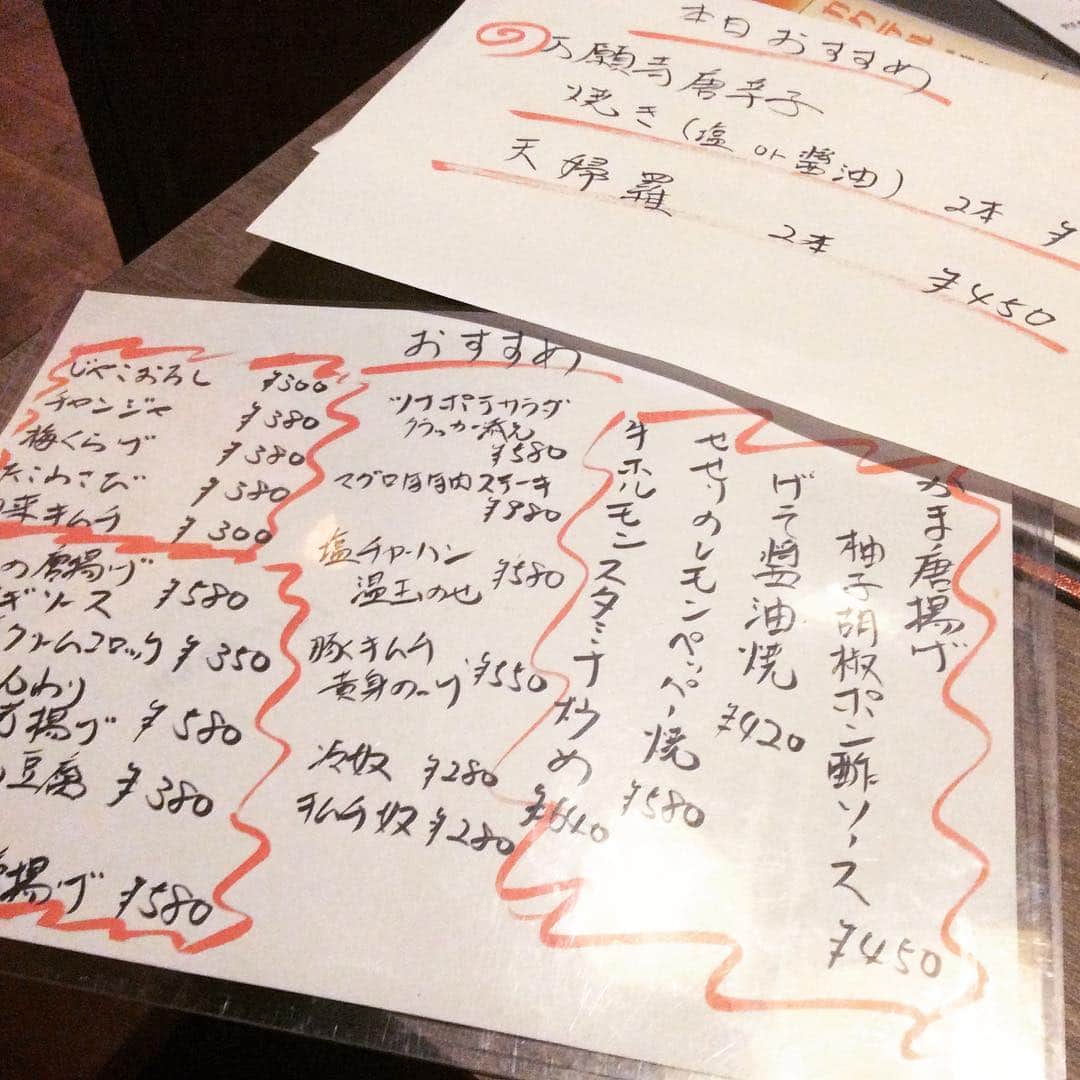 カクテル
本日おすすめ
万願寺唐辛子
焼き(塩 or 醤油) 2本 ¥
天婦羅 2本 ¥450
おすすめ
じゃこおろし ¥300
チャンジャ ¥380
梅くらげ ¥380
たこわさび ¥380
キムチ ¥300
の唐揚げ
ギソース ¥580
クリームコロッケ ¥350
んわり
揚げ ¥580
豆腐 ¥380
揚げ ¥580
ツナポテサラダ
クラッカー添え
¥580
マグロほほ肉ステーキ
¥880
塩チャーハン
温玉のせ ¥580
豚キムチ
黄身のっけ ¥550
冷奴 ¥280
キムチ奴 ¥280
かま唐揚げ
柚子胡椒ポン酢ソース ¥450
げそ醤油焼 ¥420
せせりのレモンペッパー焼 ¥580
牛ホルモンスタミナ炒め ¥640